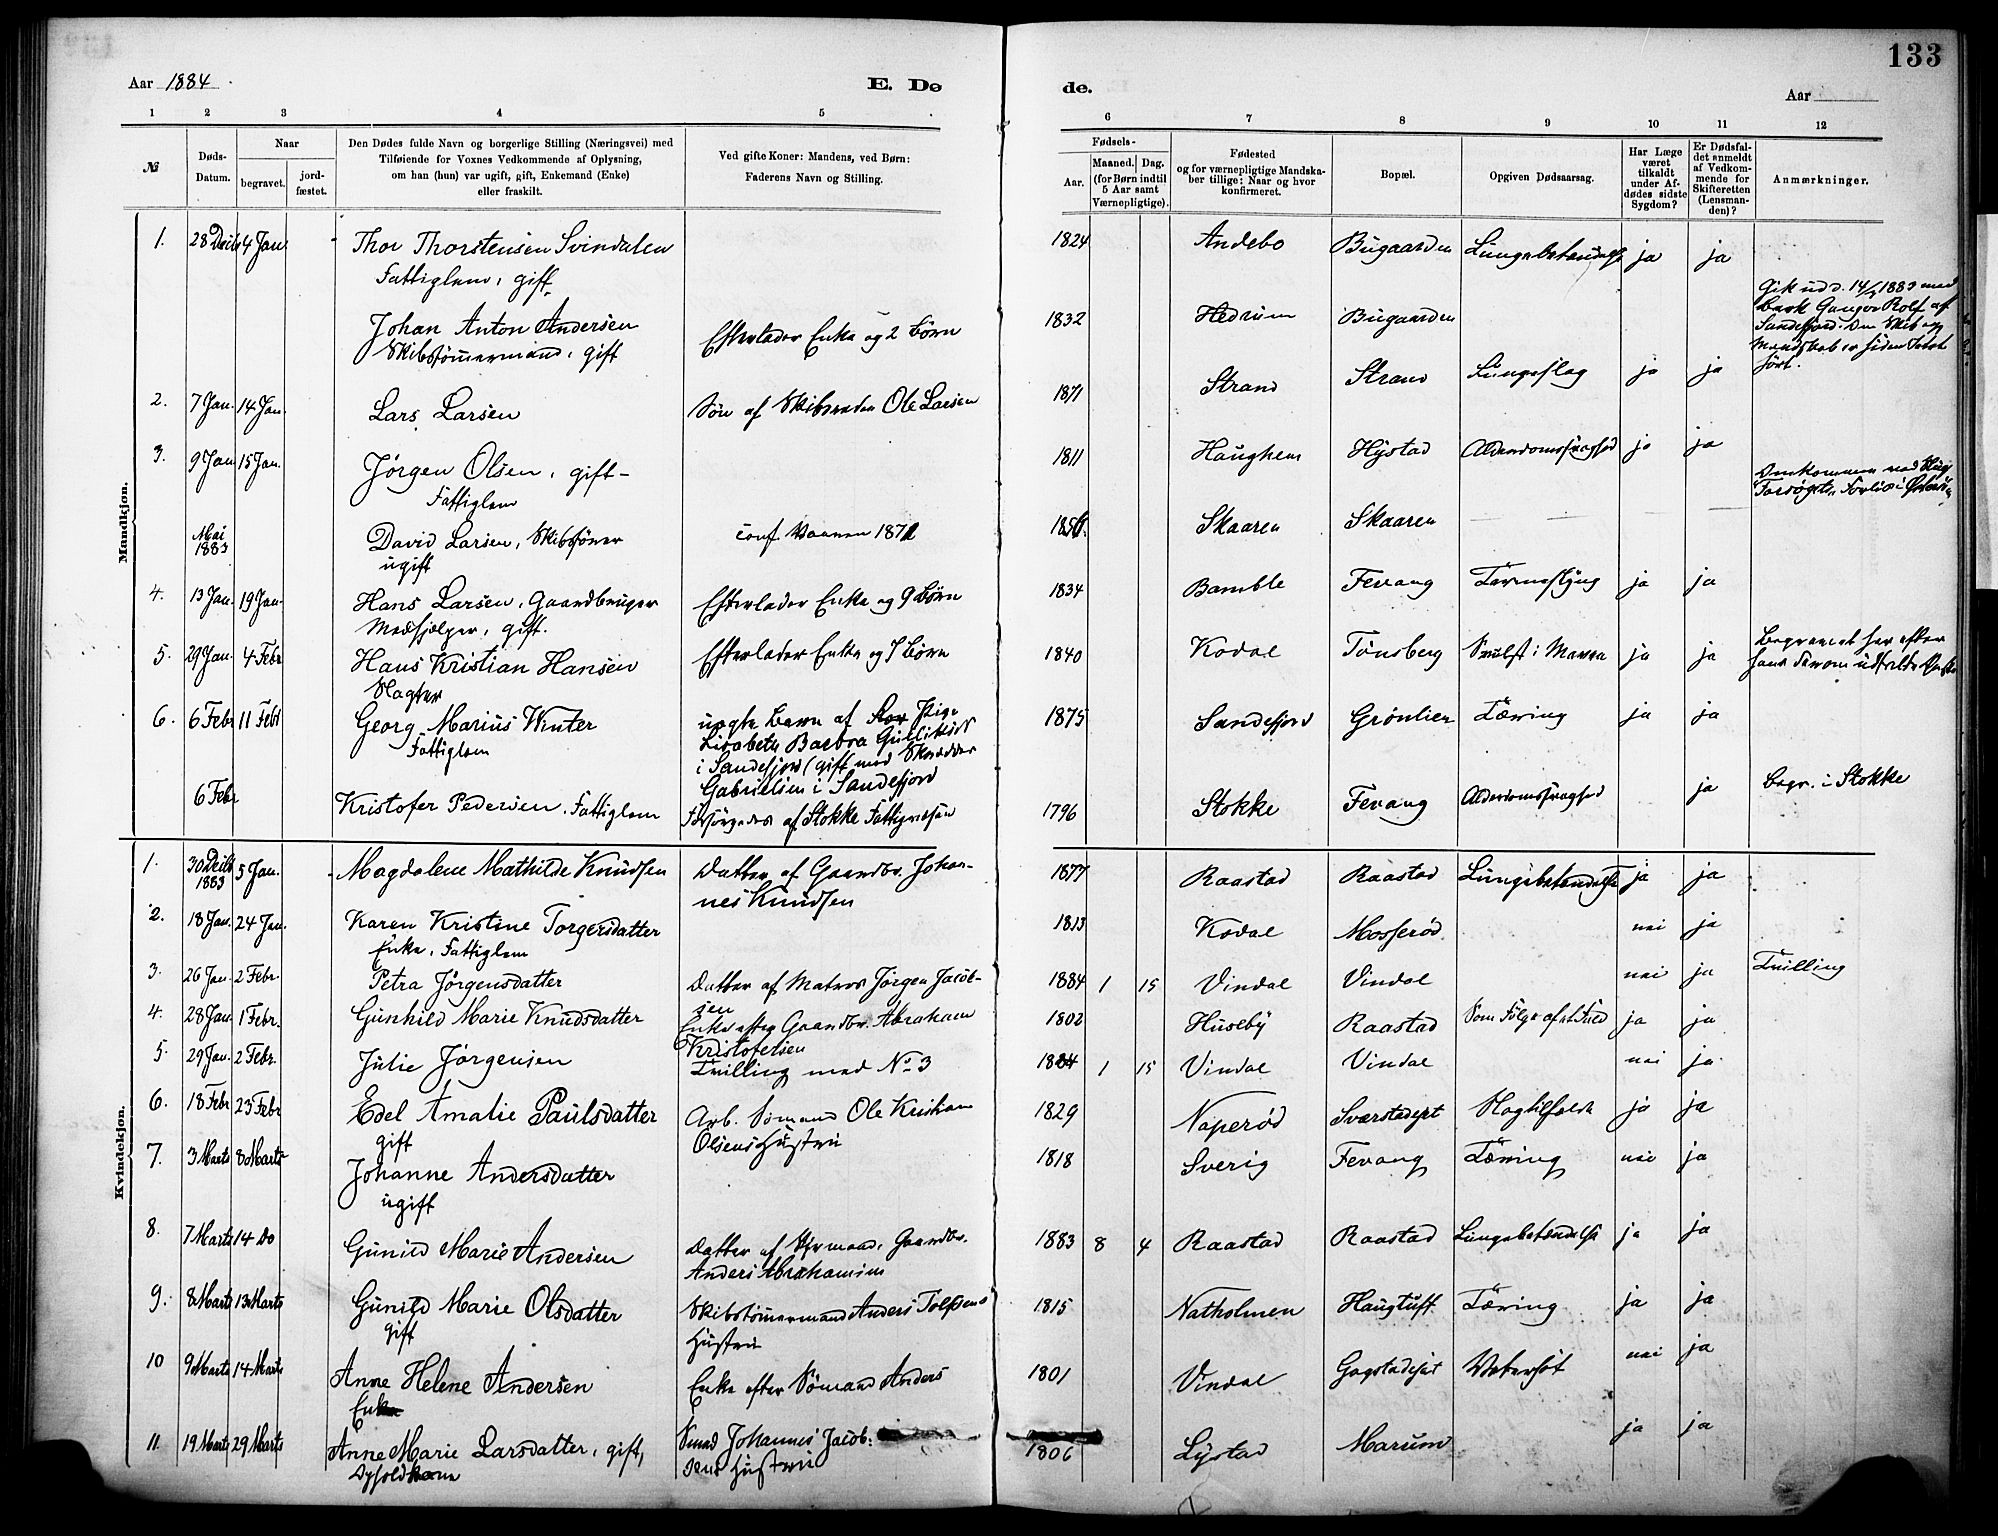 133
Aar 1884
E. Dø
de.
Aar
1 2 3 4 5 6 7 8 9 10 11 12
№
Døds-Datum.
Naar
begravet. jordfæstet.
Den Dødes fulde Navn og borgerlige Stilling (Næringsvei) med
Tilføiende for Voxnes Vedkommende af Oplysning,
om han (hun) var ugift, gift, Enkemand (Enke)
eller fraskilt.
Ved gifte Koner: Mandens, ved Børn:
Faderens Navn og Stilling.
Fødsels-
Aar. Maaned. Dag.
(for Børn indtil
5 Aar samt
Værnepligtige).
Fødested
og for værnepligtige Mandska-
ber tillige: Naar og hvor
konfirmeret.
Bopæl.
Opgiven Dødsaarsag.
Har Læge
været
tilkaldt
under Af-
dødes sidste
Sygdom?
Er Dødsfal-
det anmeldt
af Vedkom-
mende for
Skifteretten
(Lensman-
den)?
Anmærkninger.
Mandkjøn.
1. 28 Decbr 4 Jan. Thor Thorstensen Svindalen 1824 Andebo Bugaarden Lungebetændelse ja ja
Fattiglem, gift
Johan Anton Andersen Efterlader Enke og 2 Børn 1832 Hedrum Bugaarden
Skibstømermand, gift
Gik ud d. 14/ 1883 med
Bark Ganger Rolf af
Sandefjord. Om Skib og
Mandskab er siden Intet
hørt.
2. 7 Jan. 14 Jan. Lars Larsen Søn af Skibsreder Ole Larsen 1871 Strand Strand Lungeslag ja ja
3. 9 Jan 15 Jan. Jørgen Olsen, gift 1811 Haughem Hystad Alderdomssvaghed ja ja
Fattiglem
Mai
1883 David Larsen, Skibsfører conf. 1872 1856. Skaaren Skaaren
ugift
Omkommen ved Skib
Forsøgets Forlis i
4. 13 Jan. 19 Jan. Hans Larsen, Gaardbruger Efterlader Enke og 9 Børn 1834 Bamble Fevang Tarmeslyng ja ja
Medhjælper, gift.
5. 29 Jan. 4 Febr Hans Kristian Hansen Efterlader Enke og 7 Børn 1840 Kodal Tønsberg Svulst i Maven ja ja
Slagter
Begravet her efter
hans derom udtrykte
6. 6 Febr 11 Febr Georg Marius Winter uægte Barn af Pige 1875 Sandefjord Grønlien Tæring ja ja
Fattiglem
Lisabeth Barbra Gullicksdt
i Sandefjord (gift med Skrædder
Gabrielsen i Sandefjord
6 Febr Kristofer Pedersen. Fattiglem Forsørgedes af Stokke Fattigvæsen 1796 Stokke Fevang Alderdomssvaghed ja Begr. i Stokke
Kvindekjøn.
1. 30 Decbr
1883 5 Jan. Magdalene Mathilde Knudsen Datter af Gaardbr. Johan-
nes Knudsen 1877 Raastad Raastad Lungebetændelse ja ja
2. 18 Jan. 24 Jan. Karen Kristine Torgersdatter 1813 Kodal Mosserød. nei ja
Enke, Fattiglem
3. 26 Jan. 2 Febr. Petra Jørgensdatter Datter af Matros Jørgen Jacob-
sen 1884 1 15 Vindal Vindal nei ja Tvilling
4. 28 Jan. 1 Febr. Gunhild Marie Knudsdatter Enke efter Gaardbr. Abraham
Kristofersen 1802 Huseby Raastad Som Følge af et Fald ja ja
5. 29 Jan. 2 Febr. Julie Jørgensen Tvilling med No 3 1884 1 15 Vindal Vindal nei ja
6. 18 Febr 23 Febr Edel Amalie Paulsdatter Arb. Sømand Ole Kristian
Olsens Hustru 1829 Naperød Sverstadejet Slagtilfælde ja ja
gift
7. 3 Marts 8 Marts Johanne Andersdatter 1818 Sverig Fevang Tæring nei ja
ugift
8. 7 Marts 14 Do Gunild Marie Andersen Datter af Styrmand, Gaardbr.
Anders Abrahamsen 1883 8 4 Raastad Raastad Lungebetændelse ja ja
9. 8 Marts 13 Marts Gunild Marie Olsdatter Skibstømermand Anders Tolfsens
Hustru 1815 Natholmen Haugtuft Tæring ja ja
gift
10 9 Marts 14 Marts Anne Helene Andersen Enke efter Sømand Anders 1801 Vindal Gogstadejet Vatersot nei ja
Enke
11. 19 Marts 29 Marts Anne Marie Larsdatter, gift, Smed Johannes Jacob-
sens Hustru 1806 Lystad Marum ja ja